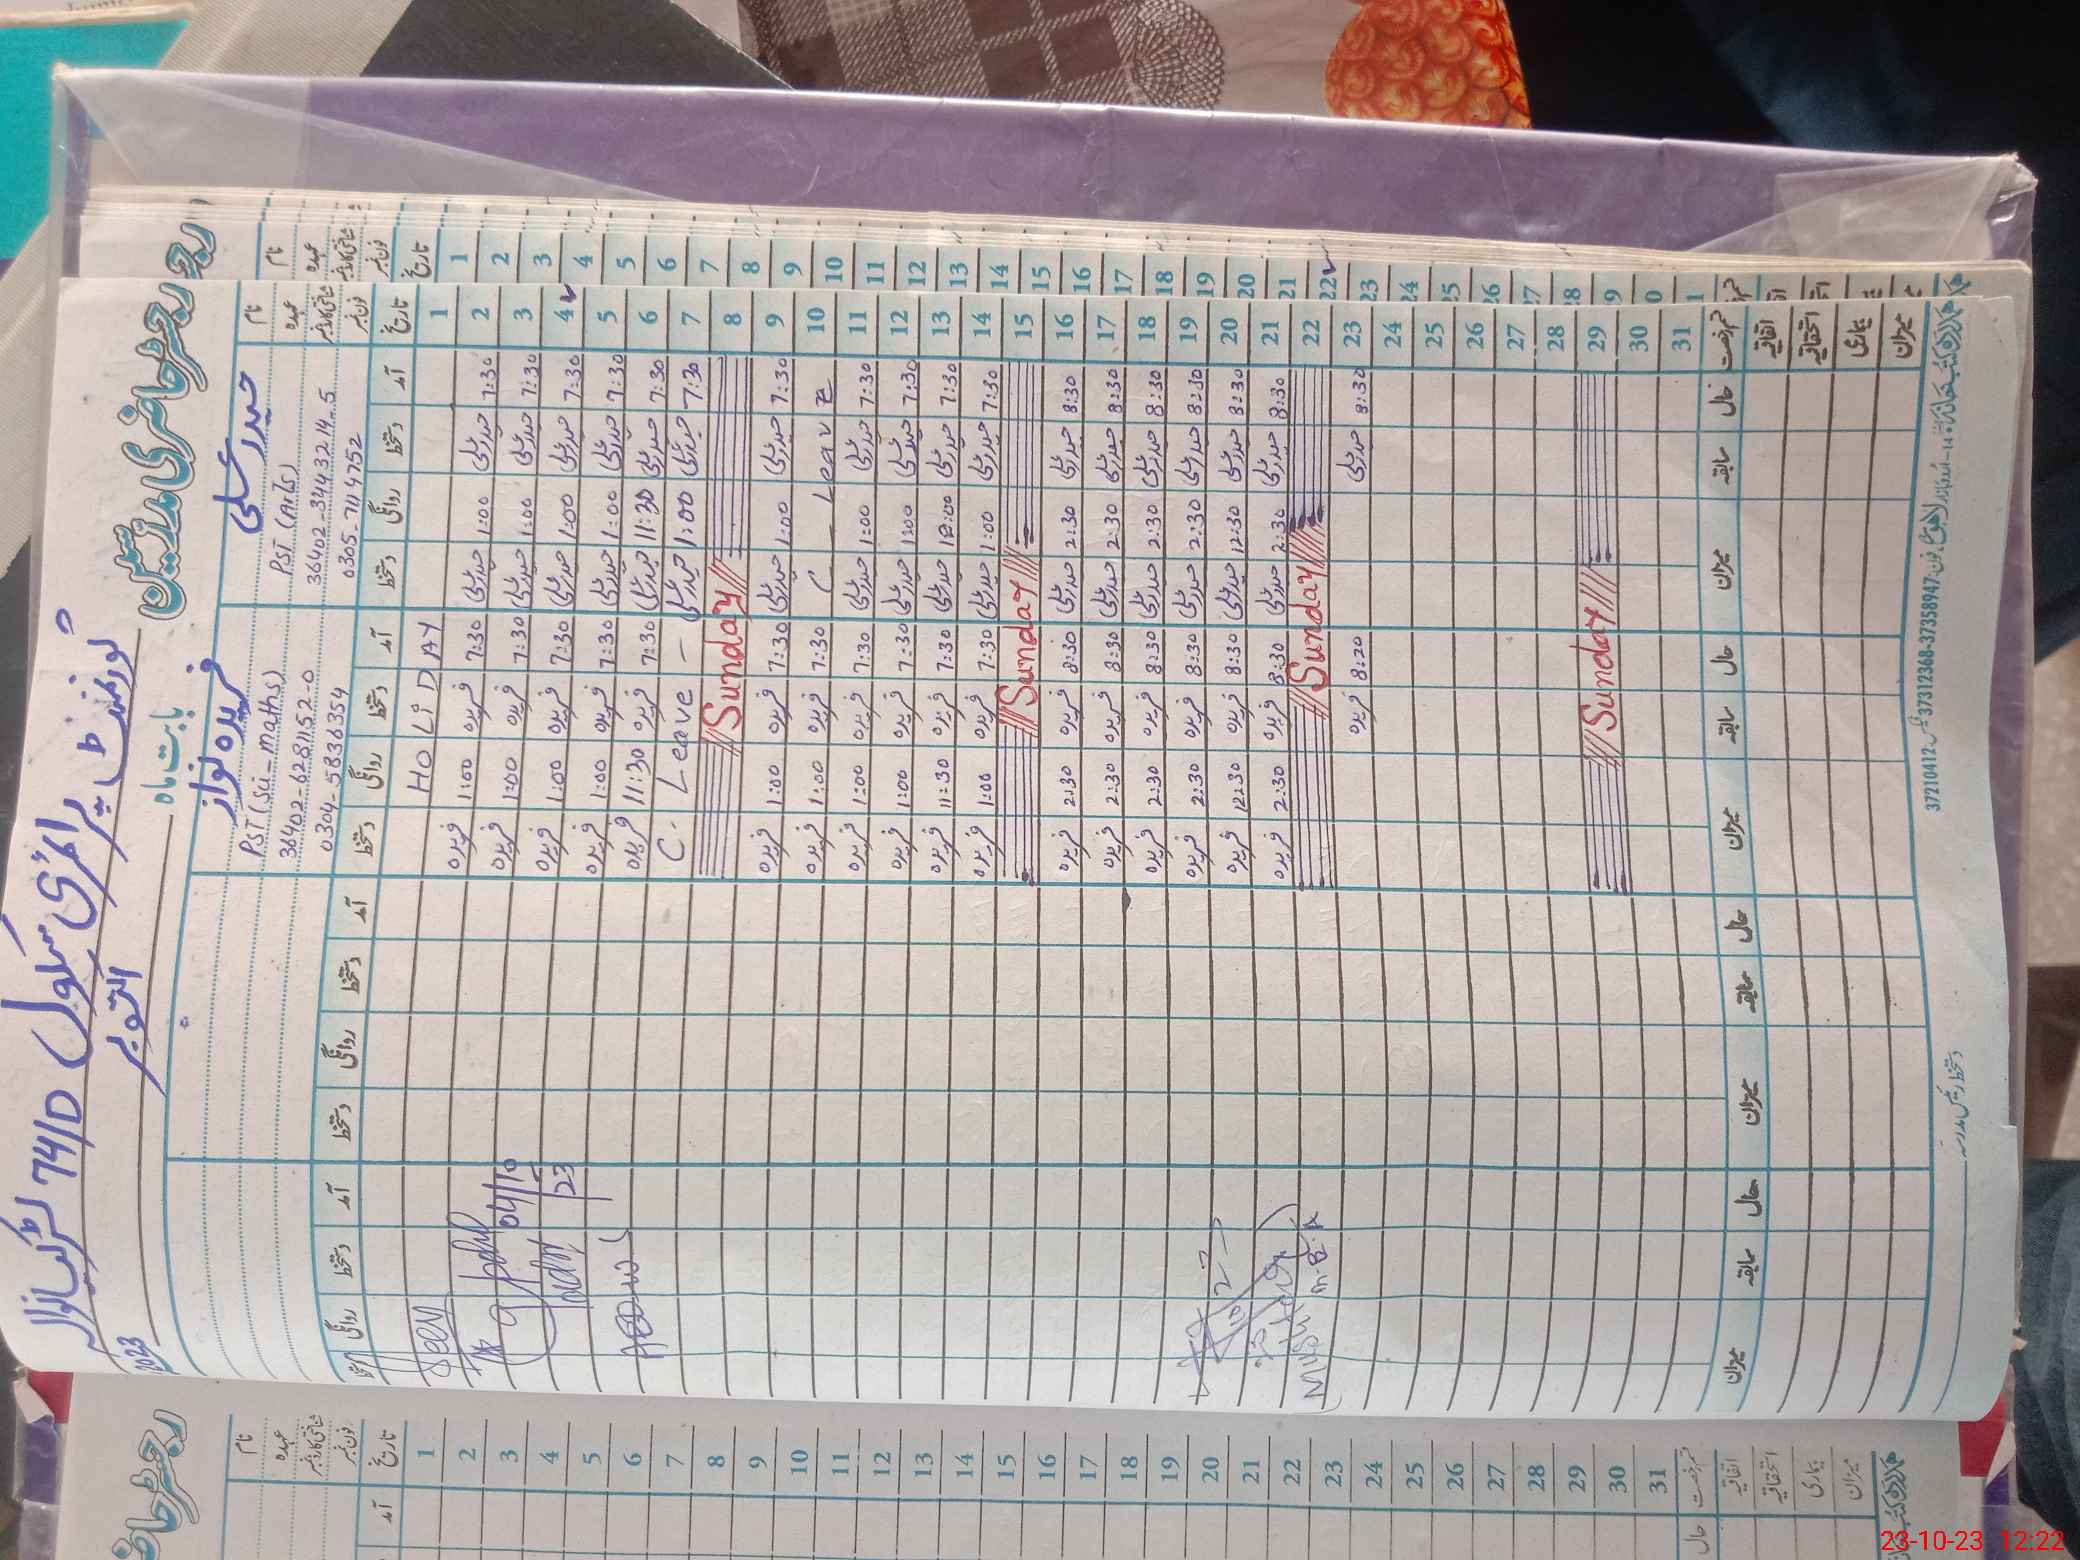 گورنمنٹ پرائمری سکول 74/D
رجسٹر حاضری مدرسین
بابت ماہ اکتوبر 2023
نام حیدر علی فریدہ نواز
عہدہ PST (Arts) PST (Sci-maths)
شناختی کارڈ نمبر 36402-3443214-5 36402-6281152-0
فون نمبر 0305-7114752 0304-5836354
تاریخ آمد دستخط روانگی دستخط آمد دستخط روانگی دستخط آمد دستخط روانگی دستخط آمد دستخط روانگی دستخط
1 HOLIDAY
2 7:30 حیدر علی 1:00 حیدر علی 7:30 فریدہ 1:00 فریدہ
3 7:30 حیدر علی 1:00 حیدر علی 7:30 فریدہ 1:00 فریدہ
4 7:30 حیدر علی 1:00 حیدر علی 7:30 فریدہ 1:00 فریدہ
5 7:30 حیدر علی 1:00 حیدر علی 7:30 فریدہ 1:00 فریدہ
6 7:30 حیدر علی 11:30 حیدر علی 7:30 فریدہ 11:30 فریدہ
7 7:30 حیدر علی 1:00 حیدر علی C. Leave -
8 Sunday
9 7:30 حیدر علی 1:00 حیدر علی 7:30 فریدہ 1:00 فریدہ
10 C - Leave 7:30 فریدہ 1:00 فریدہ
11 7:30 حیدر علی 1:00 حیدر علی 7:30 فریدہ 1:00 فریدہ
12 7:30 حیدر علی 1:00 حیدر علی 7:30 فریدہ 1:00 فریدہ
13 7:30 حیدر علی 12:00 حیدر علی 7:30 فریدہ 11:30 فریدہ
14 7:30 حیدر علی 1:00 حیدر علی 7:30 فریدہ 1:00 فریدہ
15 Sunday
16 8:30 حیدر علی 2:30 حیدر علی 8:30 فریدہ 2:30 فریدہ
17 8:30 حیدر علی 2:30 حیدر علی 8:30 فریدہ 2:30 فریدہ
18 8:30 حیدر علی 2:30 حیدر علی 8:30 فریدہ 2:30 فریدہ
19 8:30 حیدر علی 2:30 حیدر علی 8:30 فریدہ 2:30 فریدہ
20 8:30 حیدر علی 12:30 حیدر علی 8:30 فریدہ 12:30 فریدہ
21 8:30 حیدر علی 2:30 حیدر علی 8:30 فریدہ 2:30 فریدہ
22 Sunday
23 8:30 حیدر علی 8:20 فریدہ
24
25
26
27
28
29 Sunday
30
31
Seen
04/10/23
قسم رخصت حال سابقہ میزان حال سابقہ میزان حال سابقہ میزان حال سابقہ میزان
اتفاقیہ
استحقاقیہ
بیماری
میزان
37210412 37312368-37358947
دستخط رئیس مدرسہ
رجسٹر حاضری
نام
عہدہ
شناختی کارڈ نمبر
فون نمبر
تاریخ آمد
1
2
3
4
5
6
7
8
9
10
11
12
13
14
15
16
17
18
19
20
21
22
23
24
25
26
27
28
29
30
31
قسم رخصت حال
اتفاقیہ
استحقاقیہ
بیماری
میزان
23-10-23 12:22